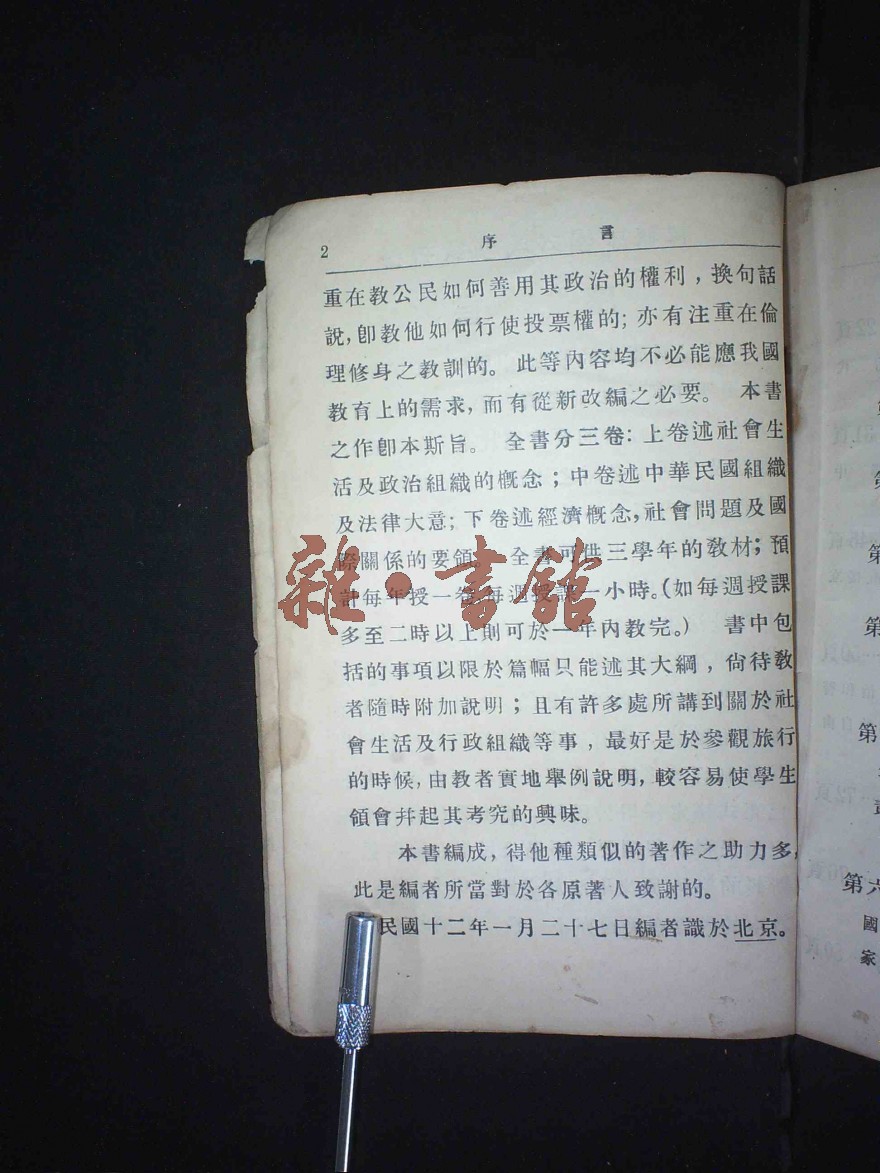 2 序 言
重在教公民如何善用其政治的權利，換句話
說，卽教他如何行使投票權的；亦有注重在倫
理修身之教訓的。 此等內容均不必能應我國
教育上的需求，而有從新改編之必要。 本書
之作卽本斯旨。 全書分三卷：上卷述社會生
活及政治組織的槪念；中卷述中華民國組織
及法律大意；下卷述經濟槪念，社會問題及國
際關係的要領。 全書可供三學年的教材；預
計每年授一卷每週授課一小時。（如每週授課
多至二時以上則可於一年內教完。） 書中包
括的事項以限於篇幅只能述其大綱，尙待教
者隨時附加說明；且有許多處所講到關於社
會生活及行政組織等事，最好是於參觀旅行
的時候，由教者實地舉例說明，較容易使學生
領會幷起其考究的興味。
本書編成，得他種類似的著作之助力多，
此是編者所當對於各原著人致謝的。
民國十二年一月二十七日編者識於北京。
雜·書館
第
第
第
第六
國
家